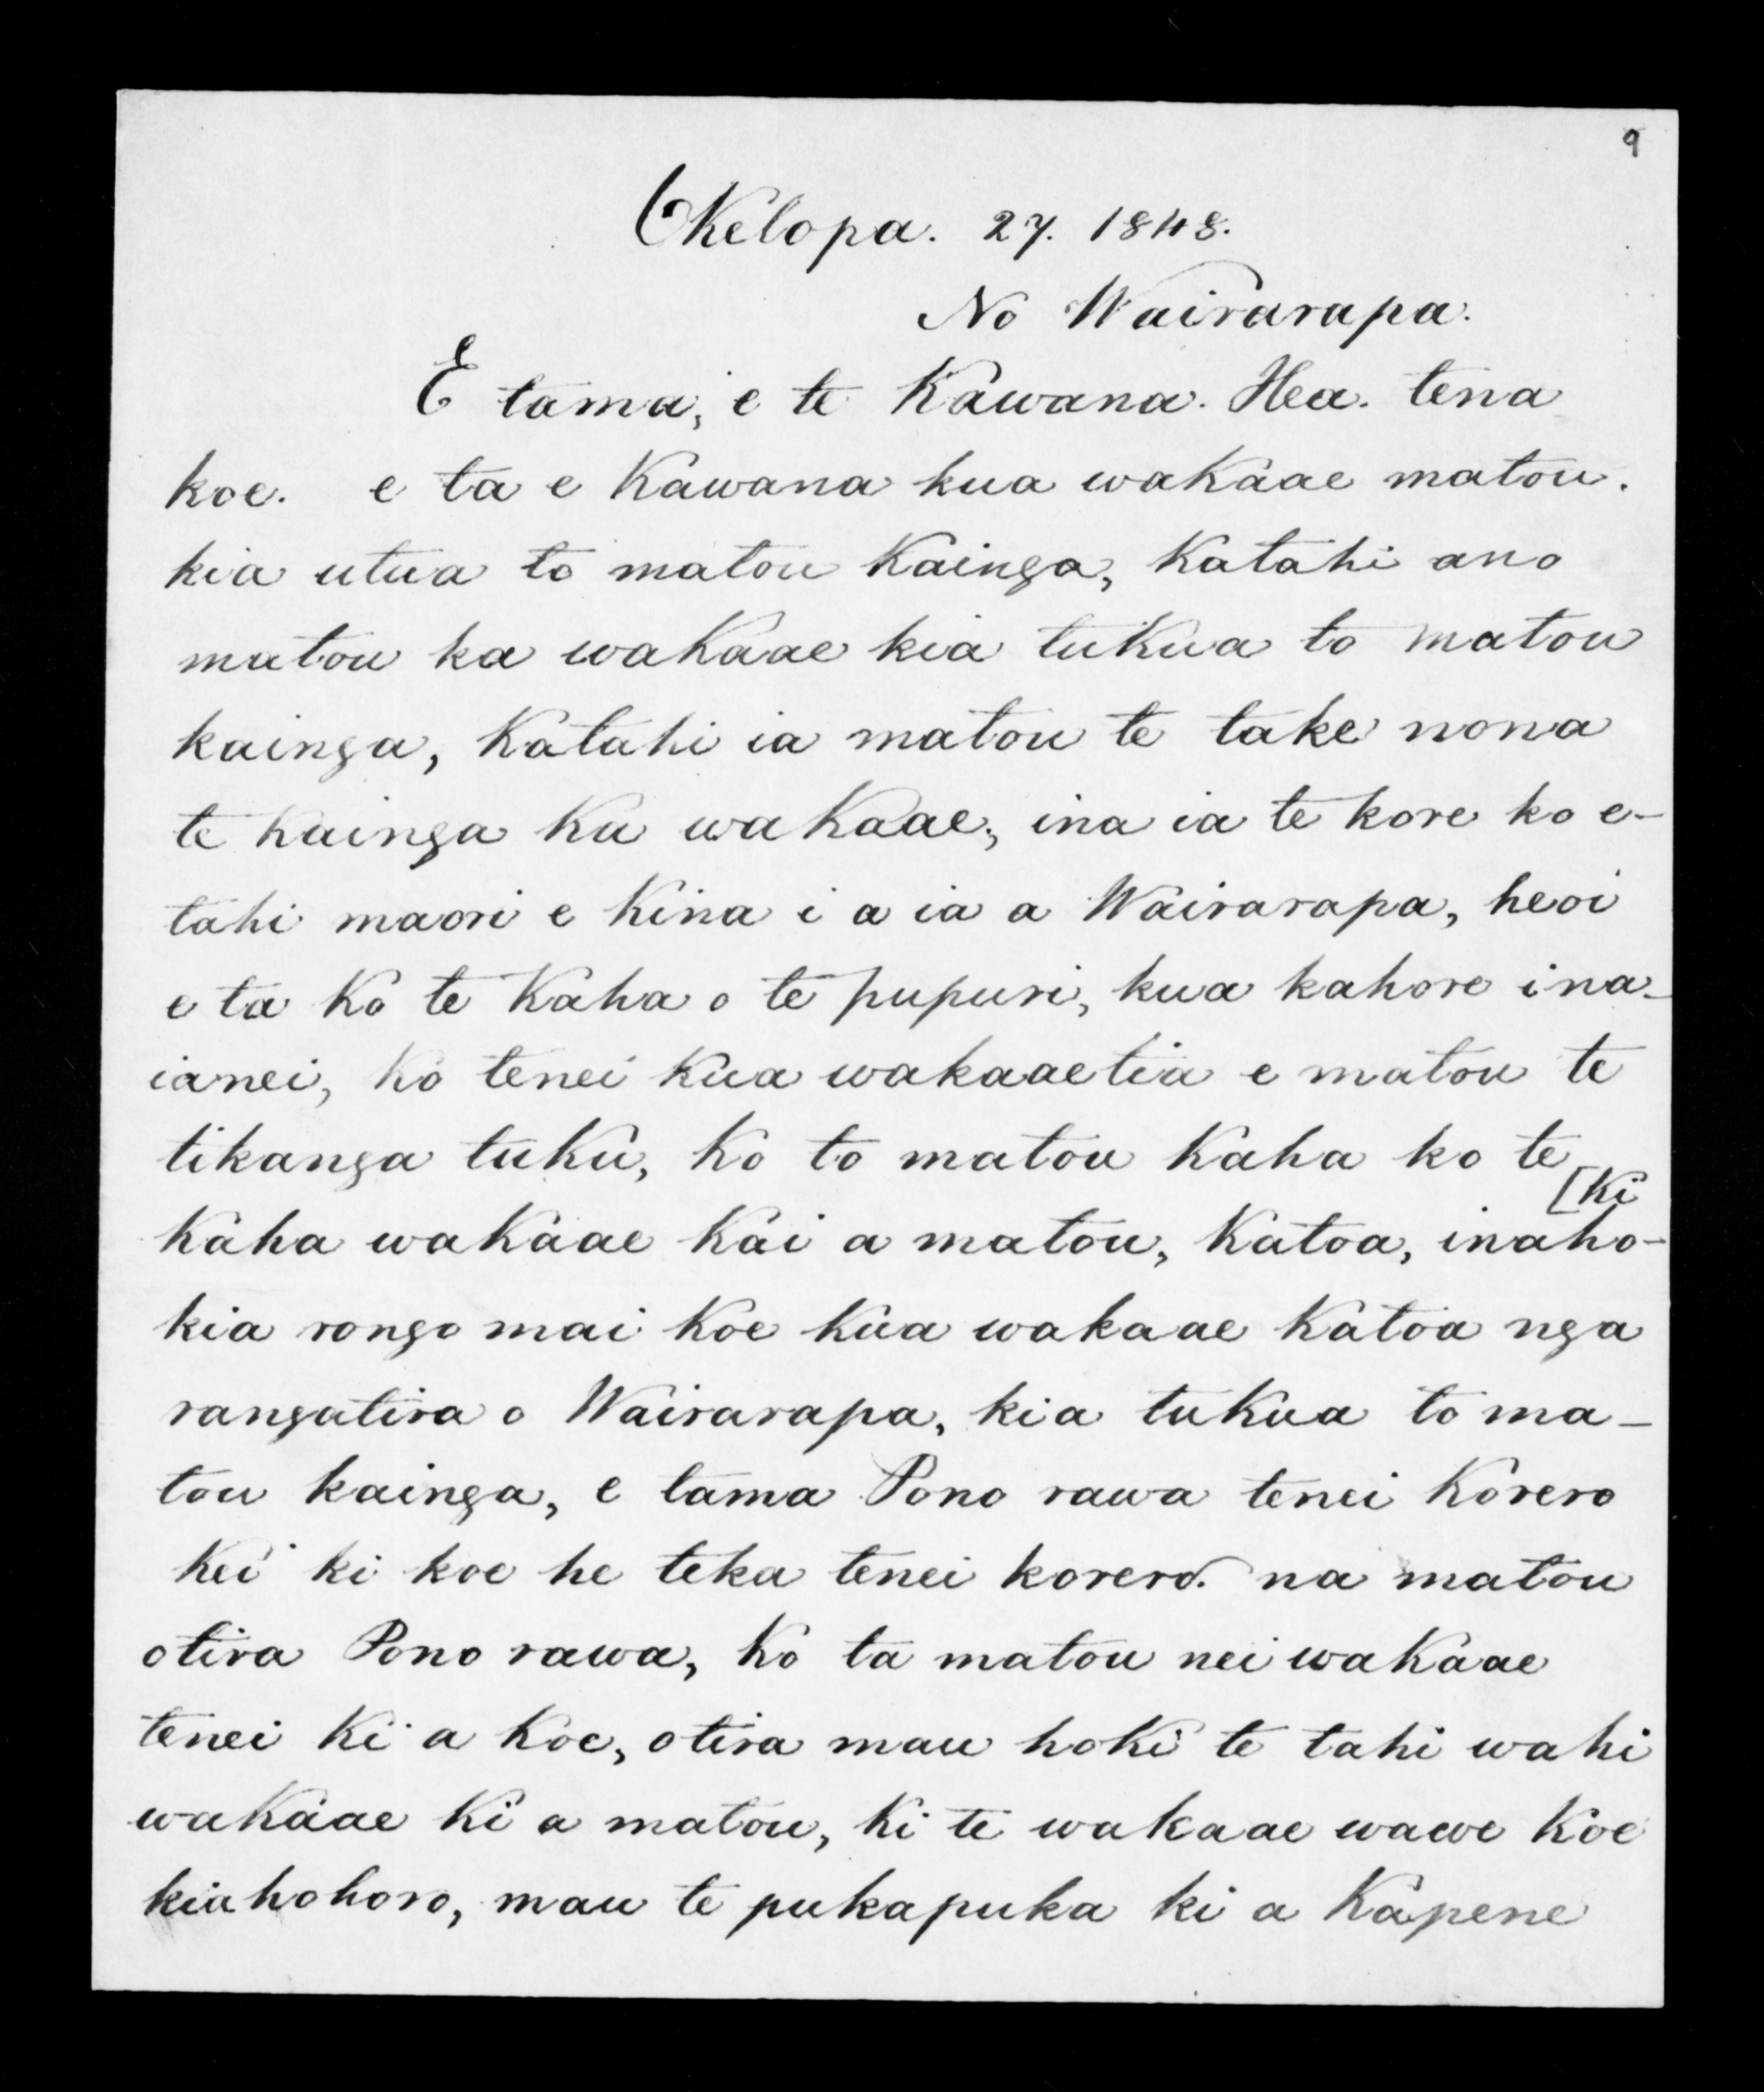 9
Oketopa. 27. 1848.
No Wairarapa.
E tama, e te Kawana. Hea. tena
koe. e ta e Kawana kua wakaae matou.
kia utua to matou Kainga, Katahi ano
matou ka wakaae kia tukua to matou
kainga, Katahi ia matou te take nona
te kainga ka wakaae, ina ia te kore ko e-
tahi maori e Kina i a ia a Wairarapa, heoi
e ta Ko te Kaha o te pupuri, kua kahore ina-
ianei, Ko tenei kua wakaaetia e matou te
tikanga tuku, Ko to matou Kaha ko te
Kaha wakaae Kai a matou, Katoa, inaho-
[Ki
kia rongo mai Koe Kua wakaae Katoa nga
rangatira o Wairarapa, kia tukua to ma-
tou kainga, e tama Pono rawa tenei Korero
Kei ki koe he teka tenei korero. na matou
otira Pono rawa, Ko ta matou nei wakaae
tenei Ki a Koe, otira mau hoki te tahi wahi
wakaae Ki a matou, Ki te wakaae wawe Koe
kia hohoro, mau te pukapuka ki a Kapene